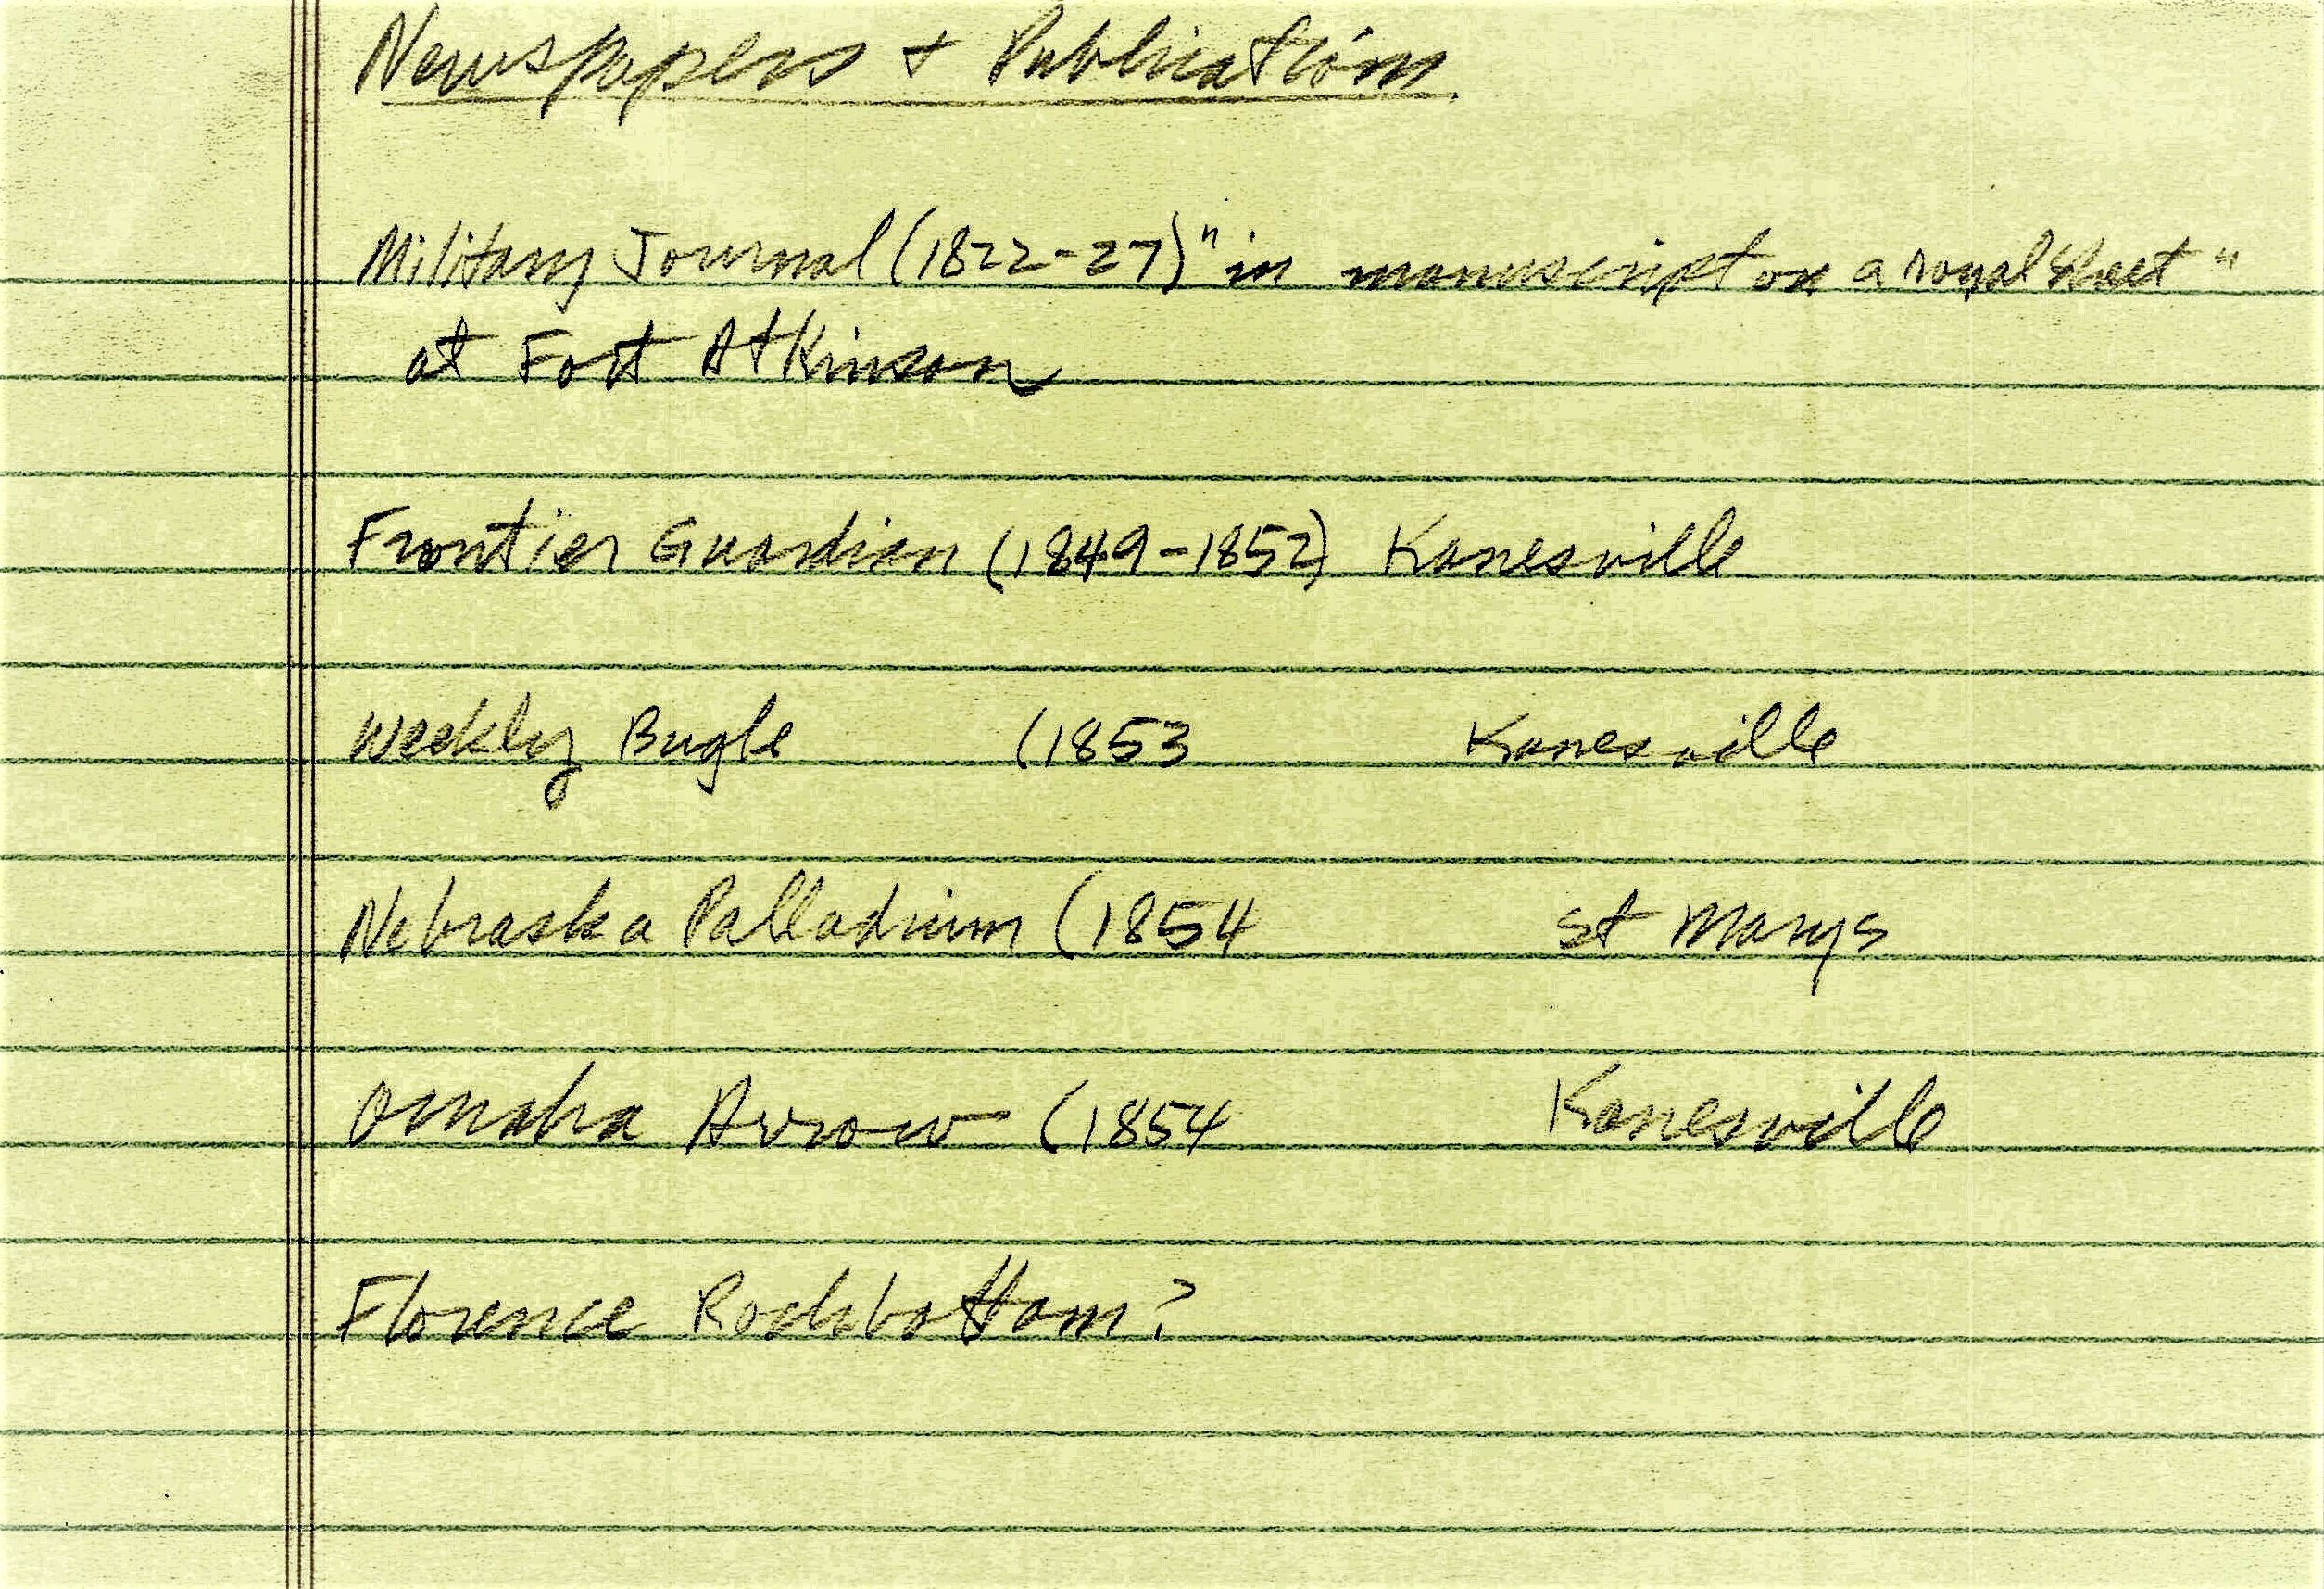 Newspapers + Publications
Military Journal (1822-27) "in manuscript on a royal sheet"
at Fort Atkinson
Frontier Guardian (1849-1852) Kanesville
Weekly Bugle (1853 Kanesville
Nebraska Palladium (1854 St Marys
Omaha Arrow (1854 Kanesville
Florence Rockbottom?